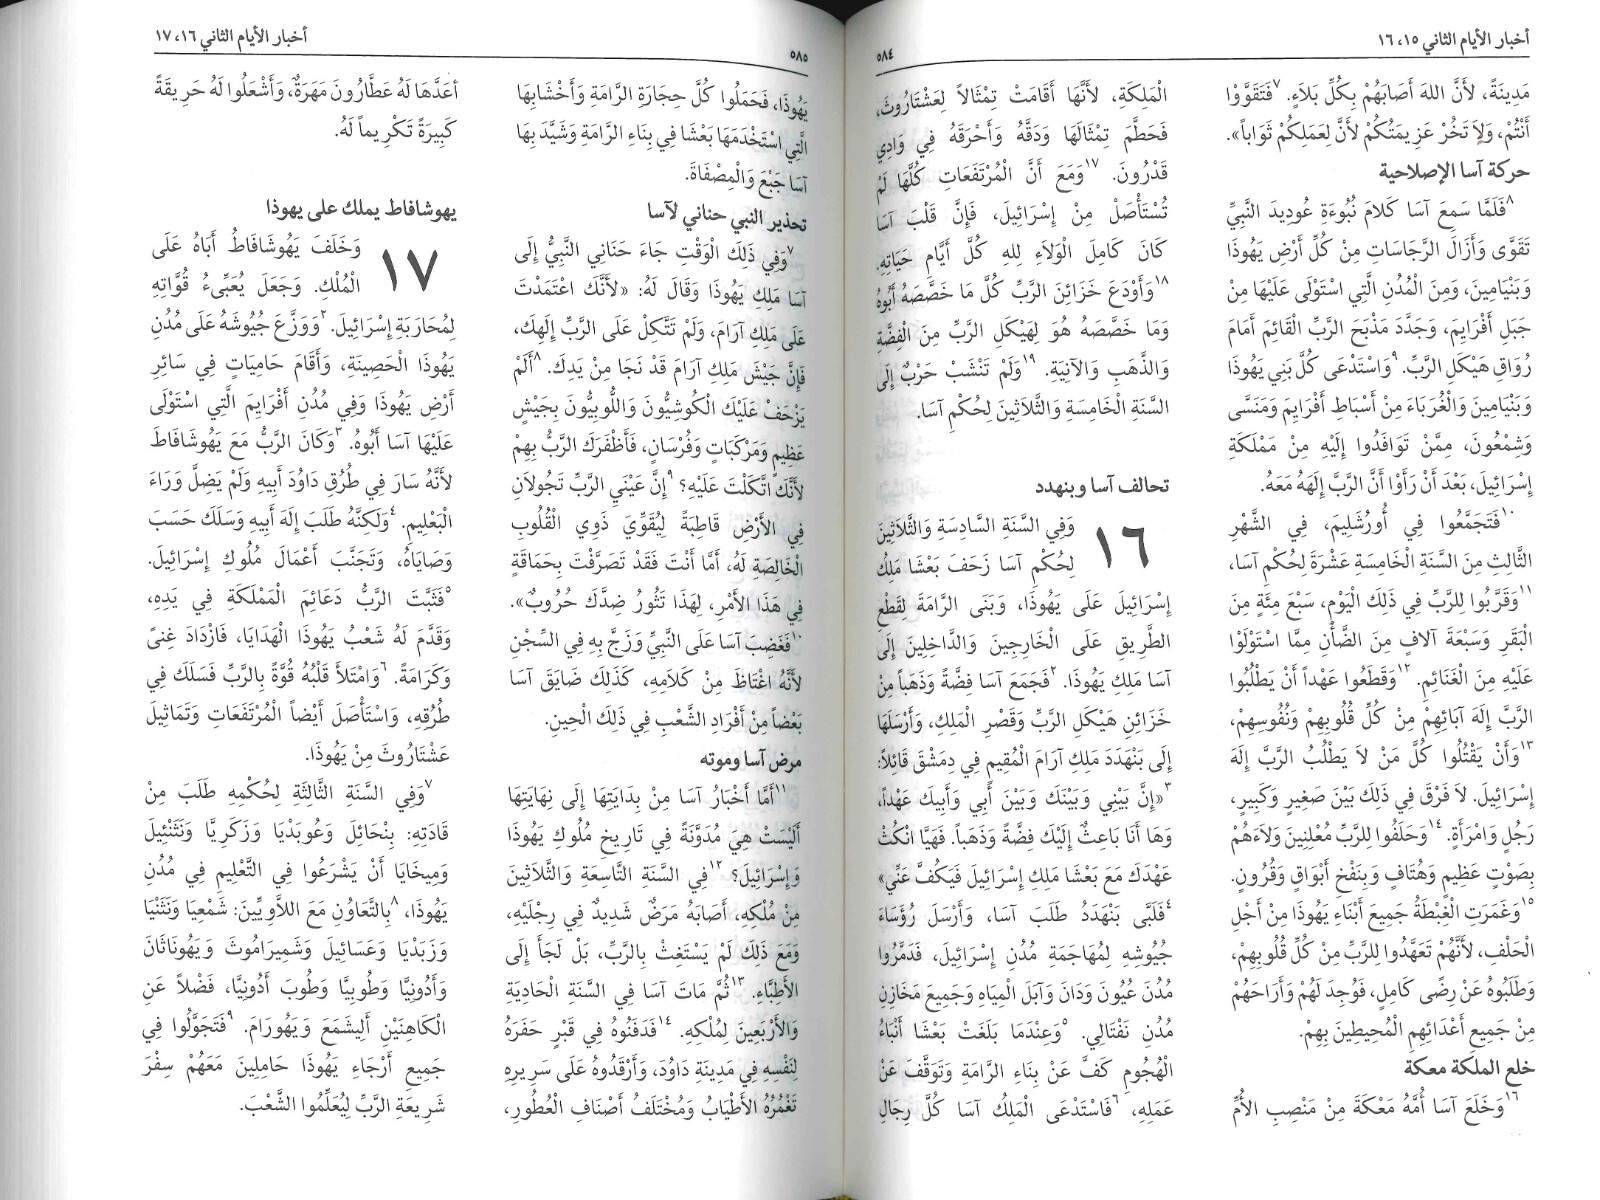 أخبار الأيام الثاني ١٥، ١٦
٥٨٤
مَدِينَةً، لأَنَّ اللهَ أَصَابَهُمْ بِكُلِّ بَلاَءٍ. ٧فَتَقَوَّوْا
أَنْتُمْ، وَلاَ تَخُرْ عَزِيمَتُكُمْ لأَنَّ لِعَمَلِكُمْ ثَوَاباً».
حركة آسا الإصلاحية
٨فَلَمَّا سَمِعَ آسَا كَلامَ نُبُوءَةِ عُودِيدَ النَّبِيِّ
تَقَوَّى وَأَزَالَ الرَّجَاسَاتِ مِنْ كُلِّ أَرْضِ يَهُوذَا
وَبِنْيَامِينَ، وَمِنَ الْمُدُنِ الَّتِي اسْتَوْلَى عَلَيْهَا مِنْ
جَبَلِ أَفْرَايِمَ، وَجَدَّدَ مَذْبَحَ الرَّبِّ الْقَائِمَ أَمَامَ
رُوَاقِ هَيْكَلِ الرَّبِّ. ٩وَاسْتَدْعَى كُلَّ بَنِي يَهُوذَا
وَبِنْيَامِينَ وَالْغُرَبَاءَ مِنْ أَسْبَاطِ أَفْرَايِمَ وَمَنَسَّى
وَشِمْعُونَ، مِمَّنْ تَوَافَدُوا إِلَيْهِ مِنْ مَمْلَكَةِ
إِسْرَائِيلَ، بَعْدَ أَنْ رَأَوْا أَنَّ الرَّبَّ إِلَهَهُ مَعَهُ.
١٠فَتَجَمَّعُوا فِي أُورُشَلِيمَ، فِي الشَّهْرِ
الثَّالِثِ مِنَ السَّنَةِ الْخَامِسَةِ عَشْرَةَ لِحُكْمِ آسَا،
١١وَقَرَّبُوا لِلرَّبِّ فِي ذَلِكَ الْيَوْمِ، سَبْعَ مِئَةٍ مِنَ
الْبَقَرِ وَسَبْعَةَ آلافٍ مِنَ الضَّأْنِ مِمَّا اسْتَوْلَوْا
عَلَيْهِ مِنَ الْغَنَائِمِ. ١٢وَقَطَعُوا عَهْداً أَنْ يَطْلُبُوا
الرَّبَّ إِلَهَ آبَائِهِمْ مِنْ كُلِّ قُلُوبِهِمْ وَنُفُوسِهِمْ،
١٣وَأَنْ يَقْتُلُوا كُلَّ مَنْ لاَ يَطْلُبُ الرَّبَّ إِلَهَ
إِسْرَائِيلَ. لاَ فَرْقَ فِي ذَلِكَ بَيْنَ صَغِيرٍ وَكَبِيرٍ،
رَجُلٍ وَامْرَأَةٍ. ١٤وَحَلَفُوا لِلرَّبِّ مُعْلِنِينَ وَلاَءَهُمْ
بِصَوْتٍ عَظِيمٍ وَهُتَافٍ وَبِنَفْخِ أَبْوَاقٍ وَقُرُونٍ.
١٥وَغَمَرَتِ الْغِبْطَةُ جَمِيعَ أَبْنَاءِ يَهُوذَا مِنْ أَجْلِ
الْحَلْفِ، لأَنَّهُمْ تَعَهَّدُوا لِلرَّبِّ مِنْ كُلِّ قُلُوبِهِمْ،
وَطَلَبُوهُ عَنْ رِضًى كَامِلٍ، فَوُجِدَ لَهُمْ وَأَرَاحَهُمْ
مِنْ جَمِيعِ أَعْدَائِهِمِ الْمُحِيطِينَ بِهِمْ.
خلع الملكة معكة
١٦وَخَلَعَ آسَا أُمَّهُ مَعْكَةَ مِنْ مَنْصِبِ الأُمِّ
الْمَلِكَةِ، لأَنَّهَا أَقَامَتْ تِمْثَالاً لِعَشْتَارُوثَ،
فَحَطَّمَ تِمْثَالَهَا وَدَقَّهُ وَأَحْرَقَهُ فِي وَادِي
قَدْرُونَ. ١٧وَمَعَ أَنَّ الْمُرْتَفَعَاتِ كُلَّهَا لَمْ
تُسْتَأْصَلْ مِنْ إِسْرَائِيلَ، فَإِنَّ قَلْبَ آسَا
كَانَ كَامِلَ الْوَلاَءِ لِلهِ كُلَّ أَيَّامِ حَيَاتِهِ.
١٨وَأَوْدَعَ خَزَائِنَ الرَّبِّ كُلَّ مَا خَصَّصَهُ أَبُوهُ
وَمَا خَصَّصَهُ هُوَ لِهَيْكَلِ الرَّبِّ مِنَ الْفِضَّةِ
وَالذَّهَبِ وَالآنِيَةِ. ١٩وَلَمْ تَنْشَبْ حَرْبٌ إِلَى
السَّنَةِ الْخَامِسَةِ وَالثَّلاَثِينَ لِحُكْمِ آسَا.
تحالف آسا وبنهدد
١٦ وَفِي السَّنَةِ السَّادِسَةِ وَالثَّلاَثِينَ
لِحُكْمِ آسَا زَحَفَ بَعْشَا مَلِكُ
إِسْرَائِيلَ عَلَى يَهُوذَا، وَبَنَى الرَّامَةَ لِقَطْعِ
الطَّرِيقِ عَلَى الْخَارِجِينَ وَالدَّاخِلِينَ إِلَى
آسَا مَلِكِ يَهُوذَا. ٢فَجَمَعَ آسَا فِضَّةً وَذَهَباً مِنْ
خَزَائِنِ هَيْكَلِ الرَّبِّ وَقَصْرِ الْمَلِكِ، وَأَرْسَلَهَا
إِلَى بَنْهَدَدَ مَلِكِ آرَامَ الْمُقِيمِ فِي دِمَشْقَ قَائِلاً:
٣«إِنَّ بَيْنِي وَبَيْنَكَ وَبَيْنَ أَبِي وَأَبِيكَ عَهْداً،
وَهَا أَنَا بَاعِثٌ إِلَيْكَ فِضَّةً وَذَهَباً. فَهَيَّا انْكُثْ
عَهْدَكَ مَعَ بَعْشَا مَلِكِ إِسْرَائِيلَ فَيَكُفَّ عَنِّي»
٤فَلَبَّى بَنْهَدَدُ طَلَبَ آسَا، وَأَرْسَلَ رُؤَسَاءَ
جُيُوشِهِ لِمُهَاجَمَةِ مُدُنِ إِسْرَائِيلَ، فَدَمَّرُوا
مُدُنَ عُيُونَ وَدَانَ وَآبَلَ الْمِيَاهِ وَجَمِيعَ مَخَازِنِ
مُدُنِ نَفْتَالِي. ٥وَعِنْدَمَا بَلَغَتْ بَعْشَا أَنْبَاءُ
الْهُجُومِ كَفَّ عَنْ بِنَاءِ الرَّامَةِ وَتَوَقَّفَ عَنْ
عَمَلِهِ، ٦فَاسْتَدْعَى الْمَلِكُ آسَا كُلَّ رِجَالِ
أخبار الأيام الثاني ١٦، ١٧
٥٨٥
يَهُوذَا، فَحَمَلُوا كُلَّ حِجَارَةِ الرَّامَةِ وَأَخْشَابِهَا
الَّتِي اسْتَخْدَمَهَا بَعْشَا فِي بِنَاءِ الرَّامَةِ وَشَيَّدَ بِهَا
آسَا جَبْعَ وَالْمِصْفَاةَ.
تحذير النبي حناني لآسا
٧وَفِي ذَلِكَ الْوَقْتِ جَاءَ حَنَانِي النَّبِيُّ إِلَى
آسَا مَلِكِ يَهُوذَا وَقَالَ لَهُ: «لأَنَّكَ اعْتَمَدْتَ
عَلَى مَلِكِ آرَامَ، وَلَمْ تَتَّكِلْ عَلَى الرَّبِّ إِلَهِكَ،
فَإِنَّ جَيْشَ مَلِكِ آرَامَ قَدْ نَجَا مِنْ يَدِكَ. ٨أَلَمْ
يَزْحَفْ عَلَيْكَ الْكُوشِيُّونَ وَاللُّوبِيُّونَ بِجَيْشٍ
عَظِيمٍ وَمَرْكَبَاتٍ وَفُرْسَانٍ، فَأَظْفَرَكَ الرَّبُّ بِهِمْ
لأَنَّكَ اتَّكَلْتَ عَلَيْهِ؟ ٩إِنَّ عَيْنَيِ الرَّبِّ تَجُولاَنِ
فِي الأَرْضِ قَاطِبَةً لِيُقَوِّيَ ذَوِي الْقُلُوبِ
الْخَالِصَةِ لَهُ، أَمَّا أَنْتَ فَقَدْ تَصَرَّفْتَ بِحَمَاقَةٍ
فِي هَذَا الأَمْرِ، لِهَذَا تَثُورُ ضِدَّكَ حُرُوبٌ».
١٠فَغَضِبَ آسَا عَلَى النَّبِيِّ وَزَجَّ بِهِ فِي السِّجْنِ
لأَنَّهُ اغْتَاظَ مِنْ كَلاَمِهِ، كَذَلِكَ ضَايَقَ آسَا
بَعْضاً مِنْ أَفْرَادِ الشَّعْبِ فِي ذَلِكَ الْحِينِ.
مرض آسا وموته
١١أَمَّا أَخْبَارُ آسَا مِنْ بِدَايَتِهَا إِلَى نِهَايَتِهَا
أَلَيْسَتْ هِيَ مُدَوَّنَةً فِي تَارِيخِ مُلُوكِ يَهُوذَا
وَإِسْرَائِيلَ؟ ١٢فِي السَّنَةِ التَّاسِعَةِ وَالثَّلاَثِينَ
مِنْ مُلْكِهِ، أَصَابَهُ مَرَضٌ شَدِيدٌ فِي رِجْلَيْهِ،
وَمَعَ ذَلِكَ لَمْ يَسْتَغِثْ بِالرَّبِّ، بَلْ لَجَأَ إِلَى
الأَطِبَّاءِ. ١٣ثُمَّ مَاتَ آسَا فِي السَّنَةِ الْحَادِيَةِ
وَالأَرْبَعِينَ لِمُلْكِهِ. ١٤فَدَفَنُوهُ فِي قَبْرٍ حَفَرَهُ
لِنَفْسِهِ فِي مَدِينَةِ دَاوُدَ، وَأَرْقَدُوهُ عَلَى سَرِيرِهِ
تَغْمُرُهُ الأَطْيَابُ وَمُخْتَلَفُ أَصْنَافِ الْعُطُورِ،
أَعَدَّهَا لَهُ عَطَّارُونَ مَهَرَةٌ، وَأَشْعَلُوا لَهُ حَرِيقَةً
كَبِيرَةً تَكْرِيماً لَهُ.
يهوشافاط يملك على يهوذا
١٧ وَخَلَفَ يَهُوشَافَاطُ أَبَاهُ عَلَى
الْمُلْكِ. وَجَعَلَ يُعَبِّىءُ قُوَّاتِهِ
لِمُحَارَبَةِ إِسْرَائِيلَ. ٢وَوَزَّعَ جُيُوشَهُ عَلَى مُدُنِ
يَهُوذَا الْحَصِينَةِ، وَأَقَامَ حَامِيَاتٍ فِي سَائِرِ
أَرْضِ يَهُوذَا وَفِي مُدُنِ أَفْرَايِمَ الَّتِي اسْتَوْلَى
عَلَيْهَا آسَا أَبُوهُ. ٣وَكَانَ الرَّبُّ مَعَ يَهُوشَافَاطَ
لأَنَّهُ سَارَ فِي طُرُقِ دَاوُدَ أَبِيهِ وَلَمْ يَضِلَّ وَرَاءَ
الْبَعْلِيمِ. ٤وَلَكِنَّهُ طَلَبَ إِلَهَ أَبِيهِ وَسَلَكَ حَسَبَ
وَصَايَاهُ، وَتَجَنَّبَ أَعْمَالَ مُلُوكِ إِسْرَائِيلَ.
٥فَثَبَّتَ الرَّبُّ دَعَائِمَ الْمَمْلَكَةِ فِي يَدِهِ،
وَقَدَّمَ لَهُ شَعْبُ يَهُوذَا الْهَدَايَا، فَازْدَادَ غِنىً
وَكَرَامَةً. ٦وَامْتَلأَ قَلْبُهُ قُوَّةً بِالرَّبِّ فَسَلَكَ فِي
طُرُقِهِ، وَاسْتَأْصَلَ أَيْضاً الْمُرْتَفَعَاتِ وَتَمَاثِيلَ
عَشْتَارُوثَ مِنْ يَهُوذَا.
٧وَفِي السَّنَةِ الثَّالِثَةِ لِحُكْمِهِ طَلَبَ مِنْ
قَادَتِهِ: بِنْحَائِلَ وَعُوبَدْيَا وَزَكَرِيَّا وَنَثَنْئِيلَ
وَمِيخَايَا أَنْ يَشْرَعُوا فِي التَّعْلِيمِ فِي مُدُنِ
يَهُوذَا، ٨بِالتَّعَاوُنِ مَعَ اللاَّوِيِّينَ: شَمْعِيَا وَنَثَنْيَا
وَزَبَدْيَا وَعَسَائِيلَ وَشَمِيرَامُوثَ وَيَهُونَاثَانَ
وَأَدُونِيَّا وَطُوبِيَّا وَطُوبَ أَدُونِيَّا، فَضْلاً عَنِ
الْكَاهِنَيْنِ أَلِيشَمَعَ وَيَهُورَامَ. ٩فَتَجَوَّلُوا فِي
جَمِيعِ أَرْجَاءِ يَهُوذَا حَامِلِينَ مَعَهُمْ سِفْرَ
شَرِيعَةِ الرَّبِّ لِيُعَلِّمُوا الشَّعْبَ.